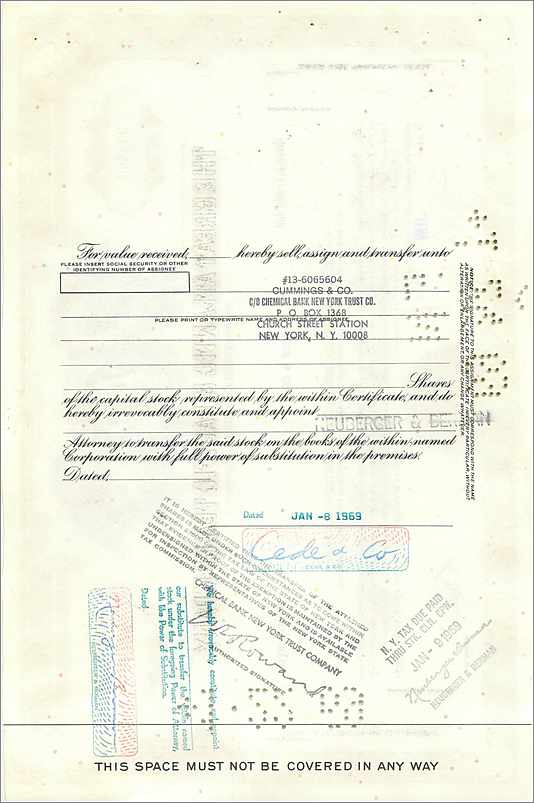 For value received, hereby sell, assign and transfer unto
PLEASE INSERT SOCIAL SECURITY OR OTHER
IDENTIFYING NUMBER OF ASSIGNEE
#13-6065604
CUMMINGS & CO.
C/O CHEMICAL BANK NEW YORK TRUST CO.
P. O. BOX 1368
PLEASE PRINT OR TYPEWRITE NAME AND ADDRESS OF ASSIGNEE
CHURCH STREET STATION
NEW YORK, N. Y. 10008
Shares
of the capital stock represented by the within Certificate, and do
hereby irrevocably constitute and appoint
NEUBERGER & BERMAN
Attorney to transfer the said stock on the books of the within named
Corporation with full power of substitution in the premises.
Dated,
NOTICE: THE SIGNATURE TO THIS ASSIGNMENT MUST CORRESPOND WITH THE NAME
AS WRITTEN UPON THE FACE OF THE CERTIFICATE IN EVERY PARTICULAR, WITHOUT
ALTERATION OR ENLARGEMENT OR ANY CHANGE WHATEVER.
Dated JAN -8 1969
Cede & Co.
CEDE & CO.
IT IS HEREBY CERTIFIED THAT THE TRANSFER OF THE ATTACHED
SHARES IS MADE UNDER SUCH CIRCUMSTANCES AS TO COME WITHIN
SECTION OF THE TAX LAW OF THE STATE OF NEW YORK AND
THAT EVIDENCE IS MAINTAINED BY THE
UNDERSIGNED WITHIN THE STATE OF NEW YORK AND IS AVAILABLE
FOR INSPECTION BY REPRESENTATIVES OF THE NEW YORK STATE
TAX COMMISSION.
CHEMICAL BANK NEW YORK TRUST COMPANY
AUTHORIZED SIGNATURE
N. Y. TAX DUE PAID
THRU STK. CLR. CPN.
JAN -9 1969
NEUBERGER & BERMAN
We hereby irrevocably constitute and appoint
our substitute to transfer the within named
stock under the foregoing Power of Attorney,
with like Power of Substitution.
Dated
THIS SPACE MUST NOT BE COVERED IN ANY WAY